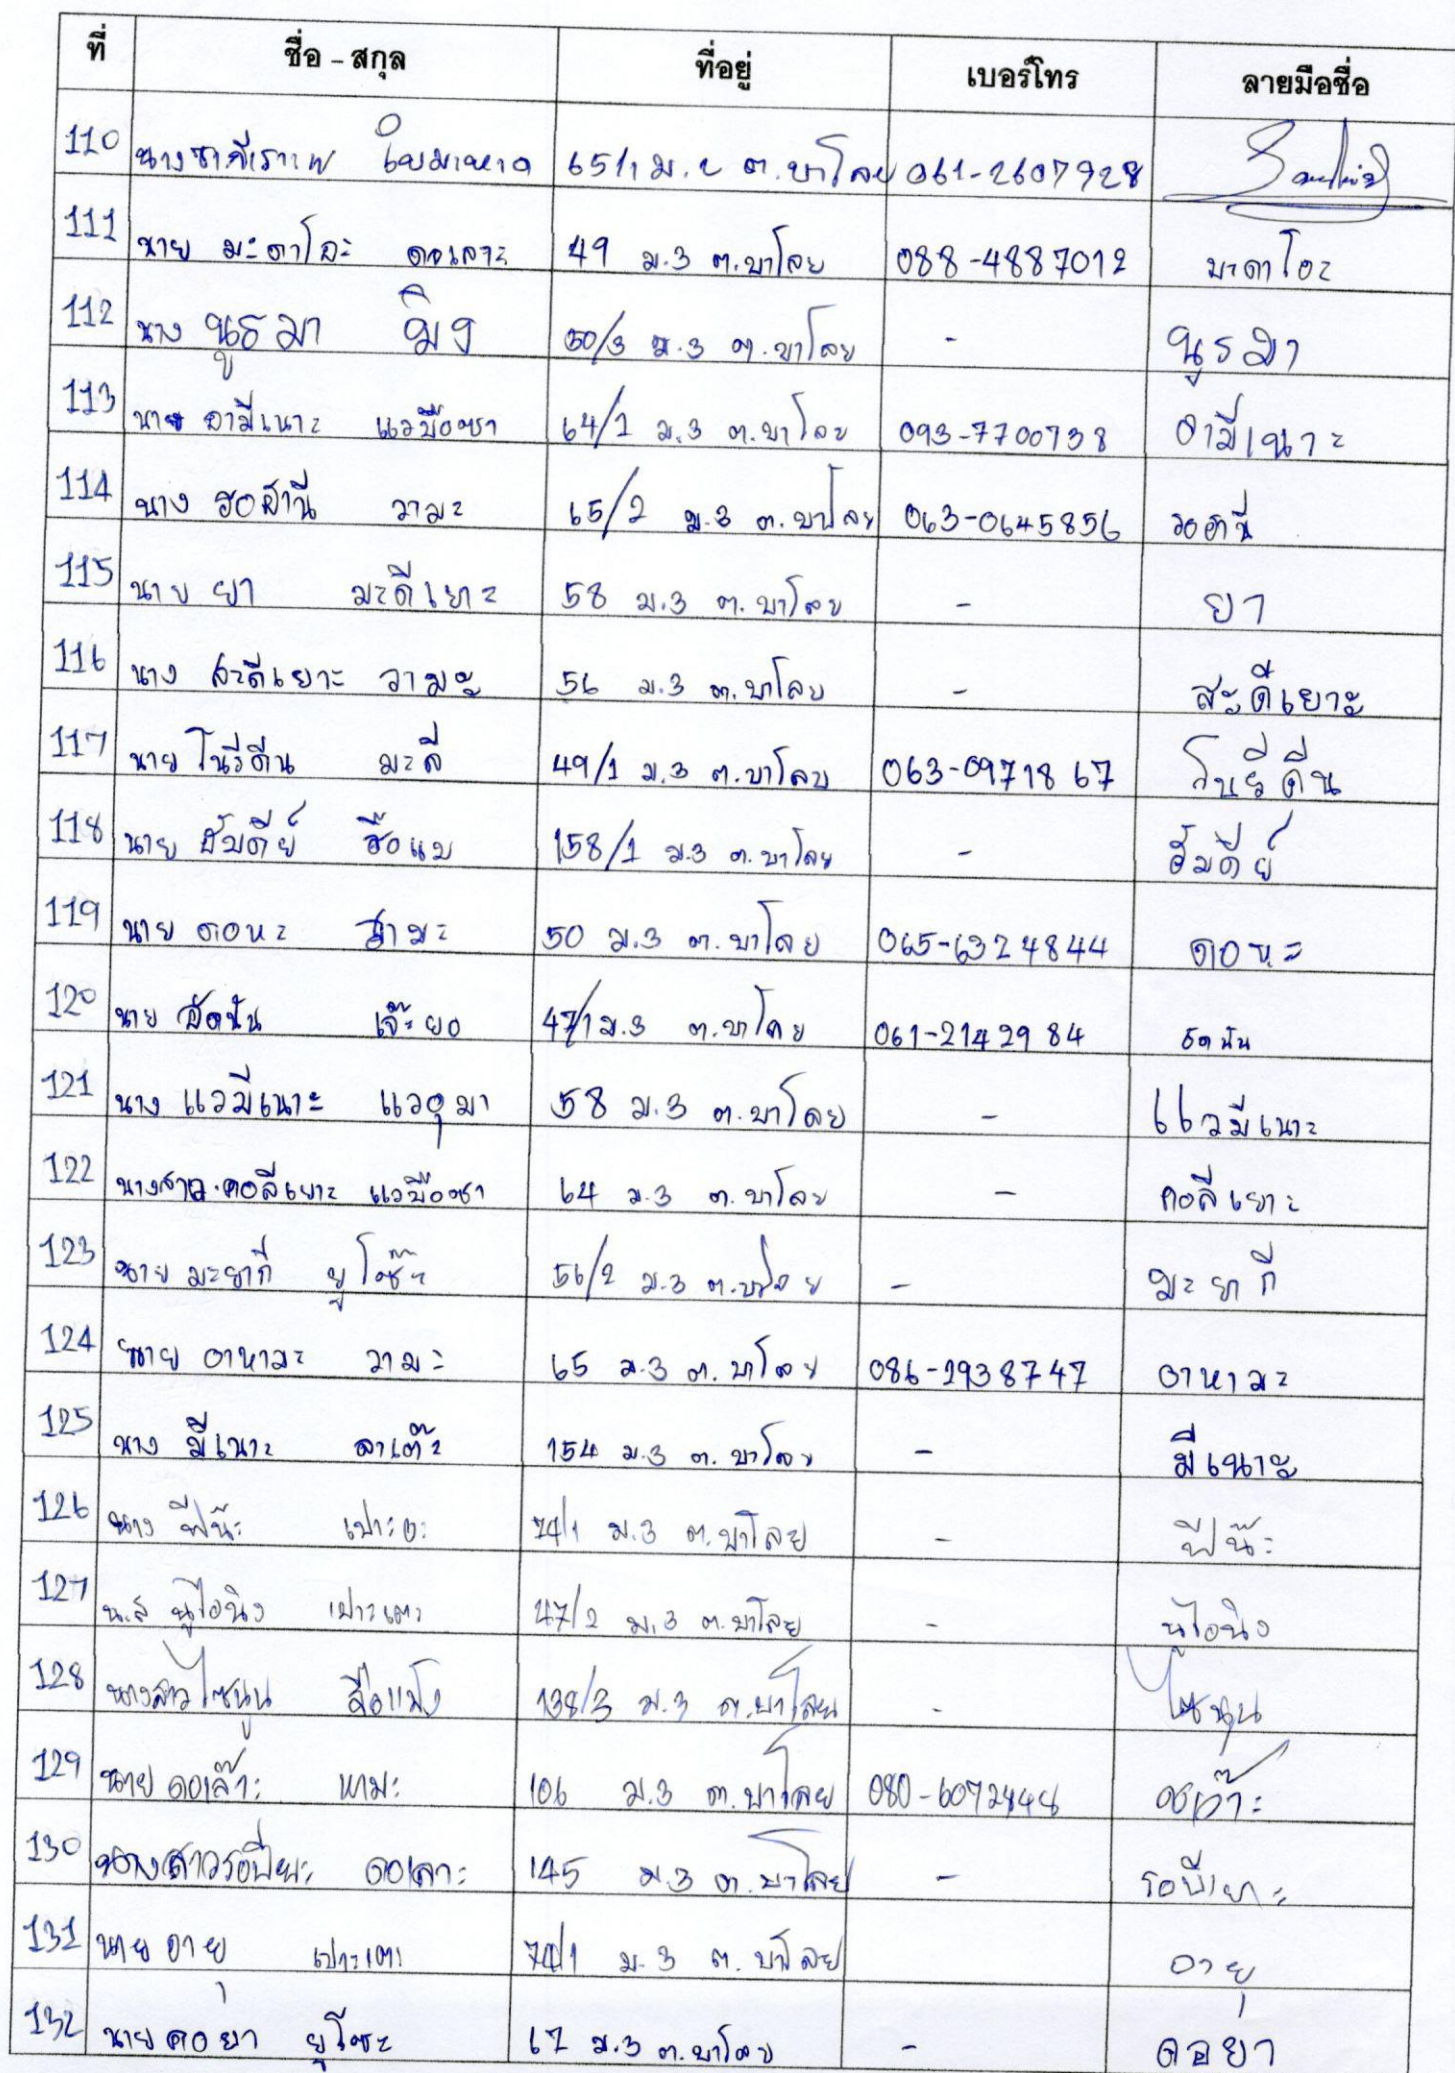 ที่ ชื่อ - สกุล ที่อยู่ เบอร์โทร ลายมือชื่อ
110 นาง 65/1 ต.บาโลย 061-2607928
111 นาย มะดาโอะ ดอเลาะ 49 ม.3 ต.บาโลย 088-4887012 มะดาโอะ
112 นาง นูรมา มิง 50/3 ม.3 ต.บาโลย - นูรมา
113 อามีเนาะ แวบือซา 64/1 ม.3 ต.บาโลย 093-7700738 อามีเนาะ
114 นาง ฮอสานี วามะ 65/2 ม.3 ต.บาโลย 063-0645856
115 นาย ยา มะดีเยาะ 58 ม.3 ต.บาโลย - ยา
116 นาง สะดีเยาะ วามะ 56 ม.3 ต.บาโลย - สะดีเยาะ
117 นาย โนรีดีน มะลี 49/1 ม.3 ต.บาโลย 063-0971867 โนรีดีน
118 นาย ฮัมดีย์ ฮือแม 158/1 ม.3 ต.บาโลย - ฮัมดีย์
119 นาย ดอหะ 50 ม.3 ต.บาโลย 065-6324844 ดอหะ
120 นาย อัดนัน เจ๊ะยอ 47/1 ม.3 ต.บาโลย 061-2142984 อดนัน
121 นาง แวมีเนาะ แวอุมา 58 ม.3 ต.บาโลย - แวมีเนาะ
122 นางสาว คอลีเยาะ แวบือซา 64 ม.3 ต.บาโลย - คอลีเยาะ
123 นาย มะยากี ยูโซ๊ะ 56/2 ม.3 ต.บาโลย - มะยากี
124 นาย อาหามะ วามะ 65 ม.3 ต.บาโลย 086-2938747 อาหามะ
125 นาง มีเนาะ ลาเต๊ะ 154 ม.3 ต.บาโลย - มีเนาะ
126 นาง ฟีน๊ะ เปาะอะ 74/1 ม.3 ต.บาโลย - ฟีน๊ะ
127 น.ส นูไอนิง เปาะเตะ 47/2 ม.3 ต.บาโลย - นูไอนิง
128 นางสาว ไซนูน 138/3 ม.3 ต.บาโลย - ไซนูน
129 นาย ดอเล๊าะ หามะ 106 ม.3 ต.บาโลย
130 นางสาว รอบีเยาะ ดอเลาะ 145 ม.3 ต.บาโลย - รอบีเยาะ
131 นาย อายุ เปาะเตะ 74/1 ม.3 ต.บาโลย อายุ
132 นาย ดอยา ยูโซะ 67 ม.3 ต.บาโลย - ดอยา